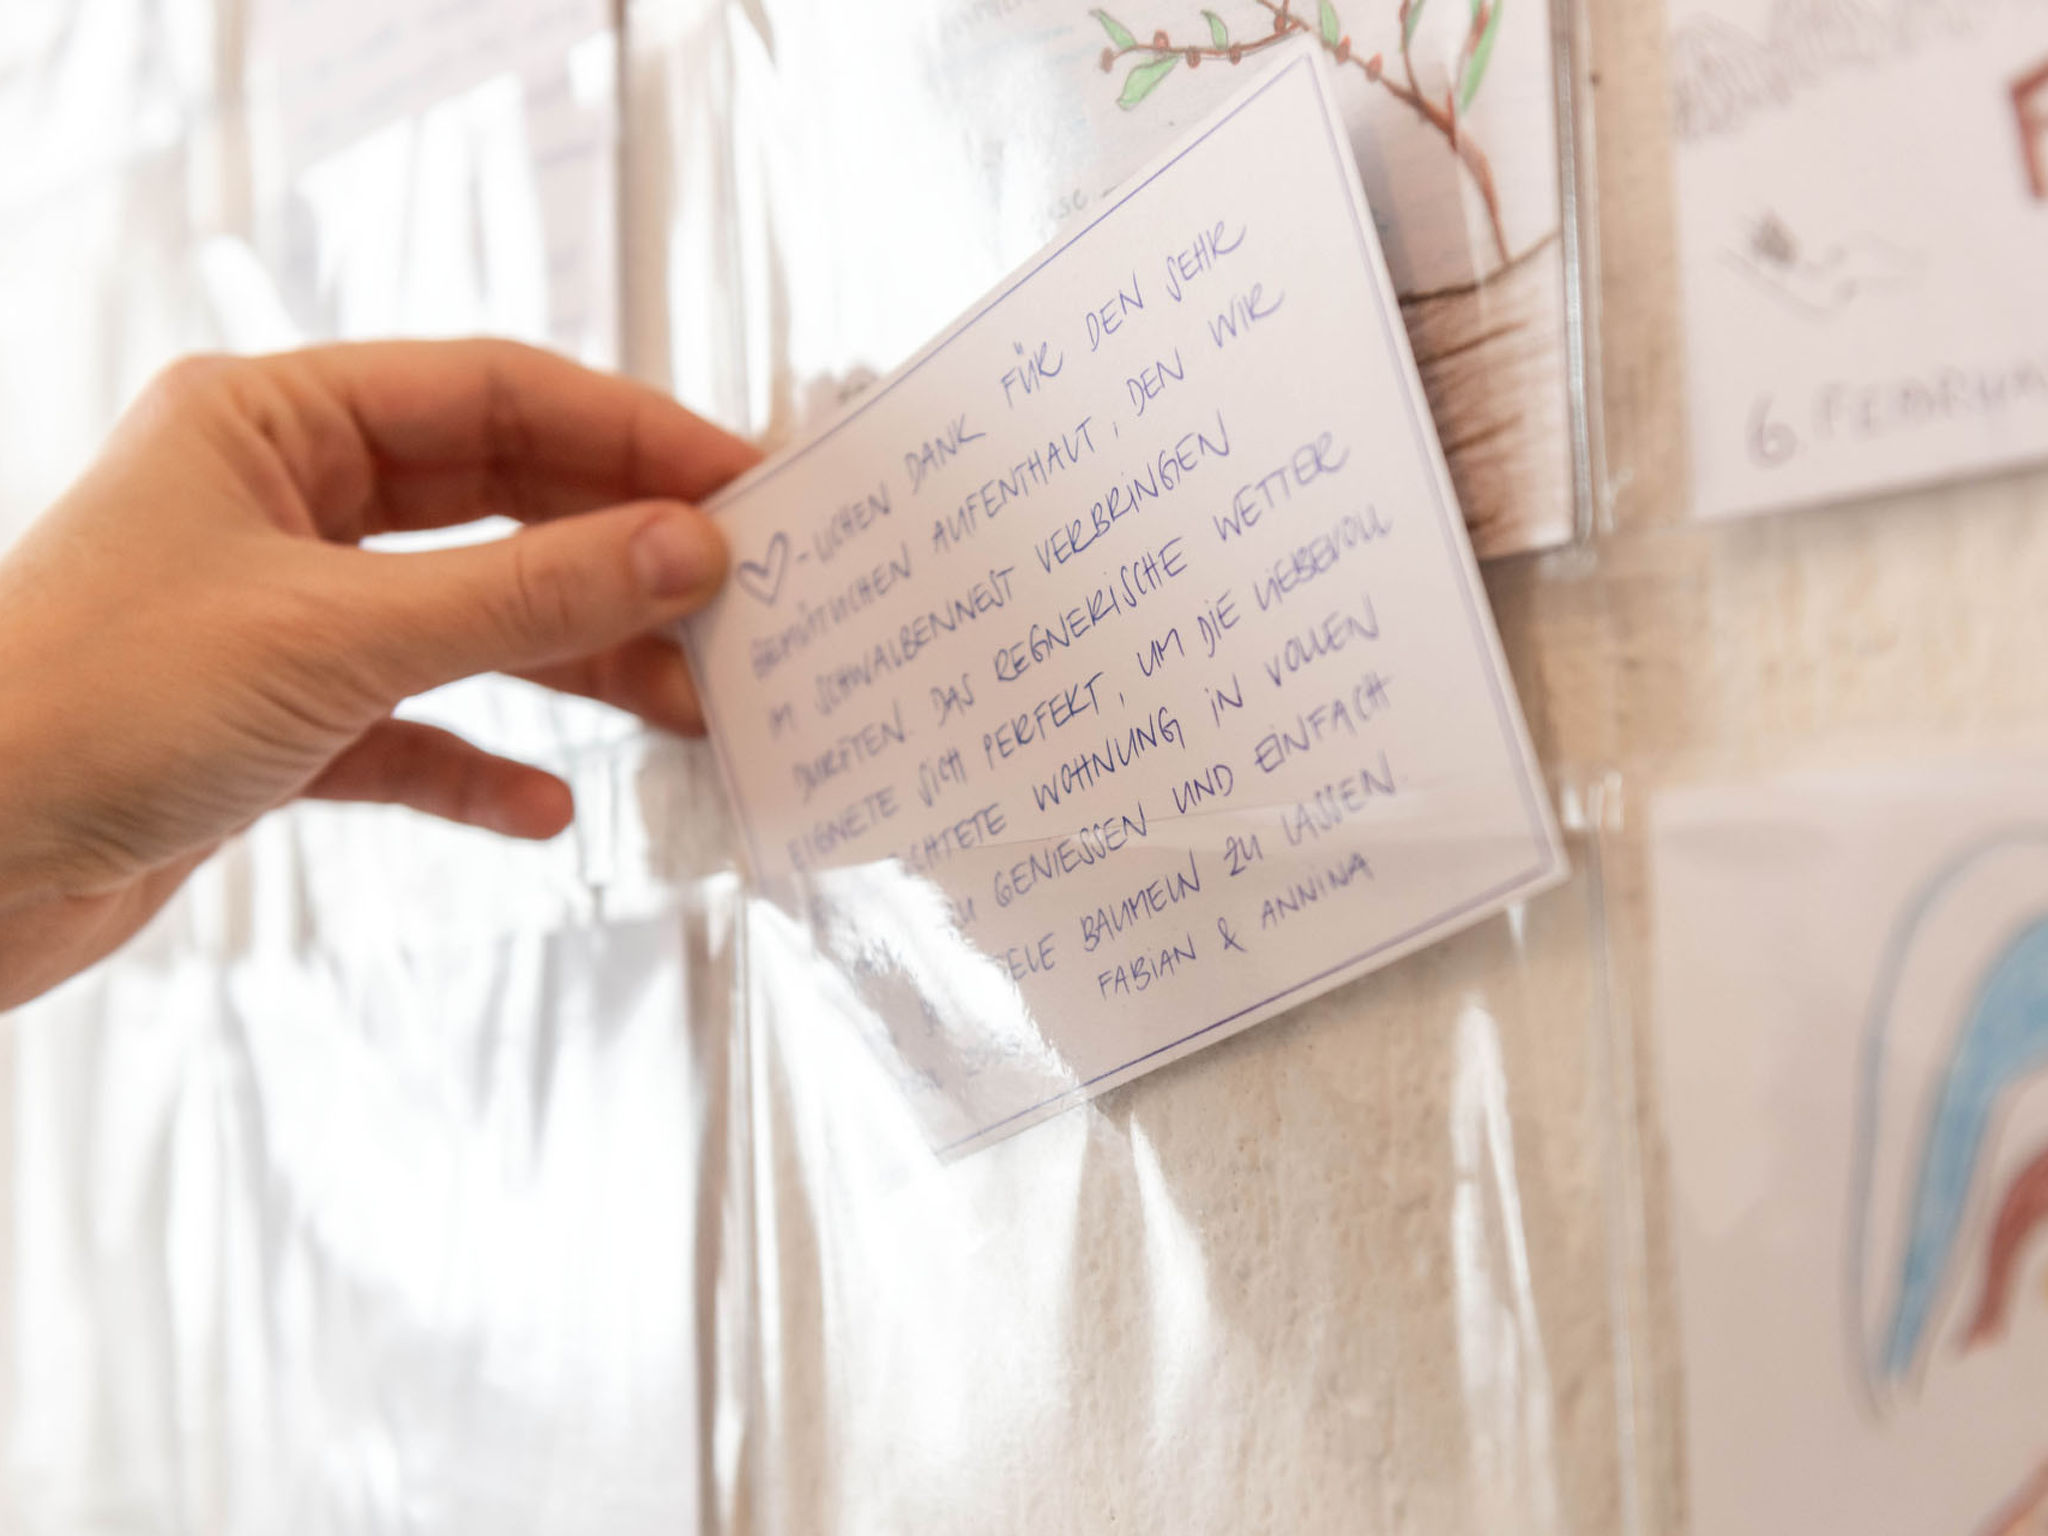 ♡-LICHEN DANK FÜR DEN SEHR
GEMÜTLICHEN AUFENTHALT, DEN WIR
IM SCHWALBENNEST VERBRINGEN
DURFTEN. DAS REGNERISCHE WETTER
EIGNETE SICH PERFEKT, UM DIE LIEBEVOLL
CHTETE WOHNUNG IN VOLLEN
GENIESSEN UND EINFACH
ELE BAUMELN ZU LASSEN.
FABIAN & ANNINA
6. FEBRUA